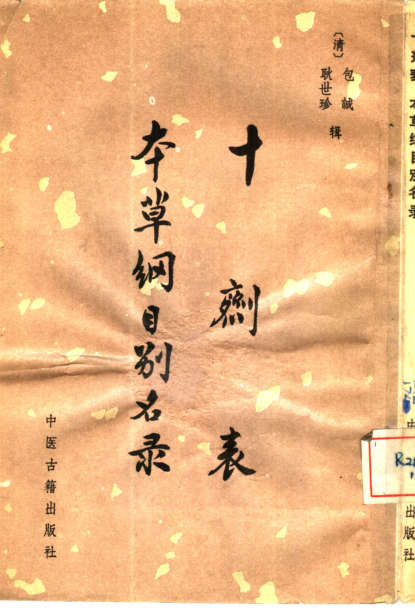 〔清〕包誠
耿世珍 辑
十劑表
本草綱目别名录
中医古籍出版社
十剂表 本草纲目别名录
中
出版社
R2